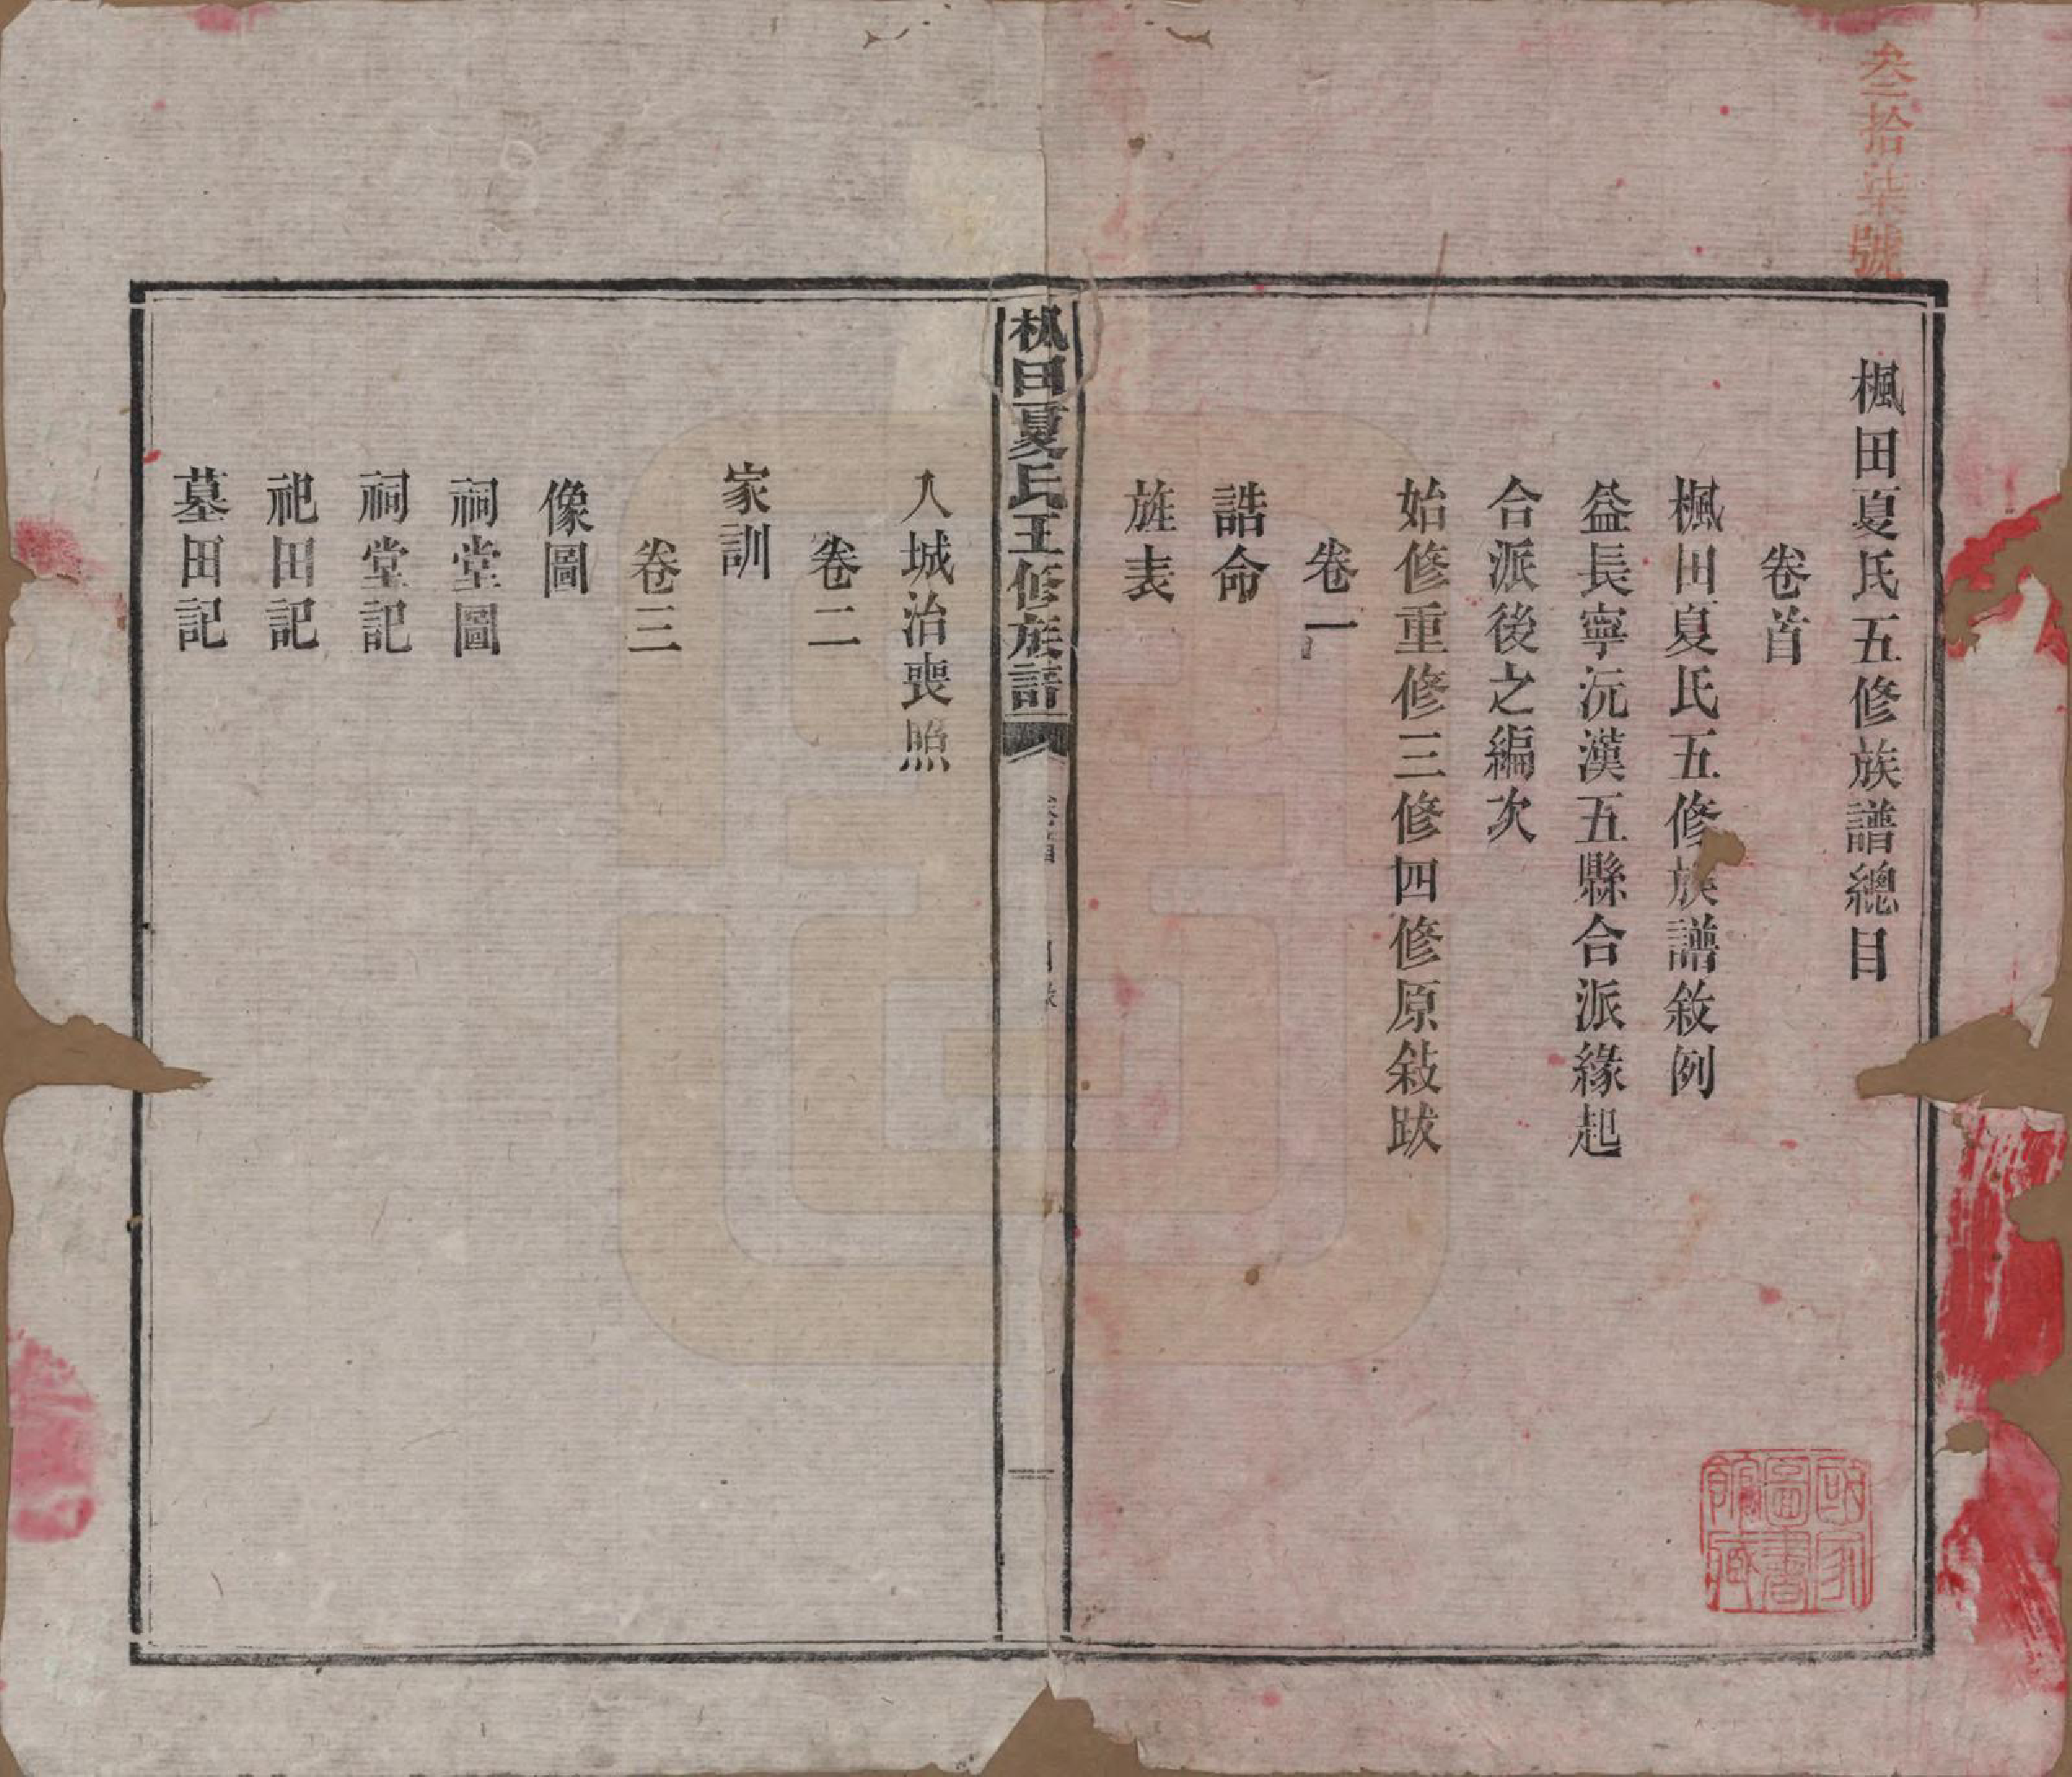 叁拾柒號
楓田夏氏五修族譜總目
卷首
楓田夏氏五修族譜敘例
益長寧沅漢五縣合派緣起
合派後之編次
始修重修三修四修原敍跋
卷一
誥命
旌表
楓田夏氏五修族譜
卷首
目錄
一
入城治喪照
卷二
家訓
卷三
像圖
祠堂圖
祠堂記
祀田記
墓田記
國家
圖書
館藏